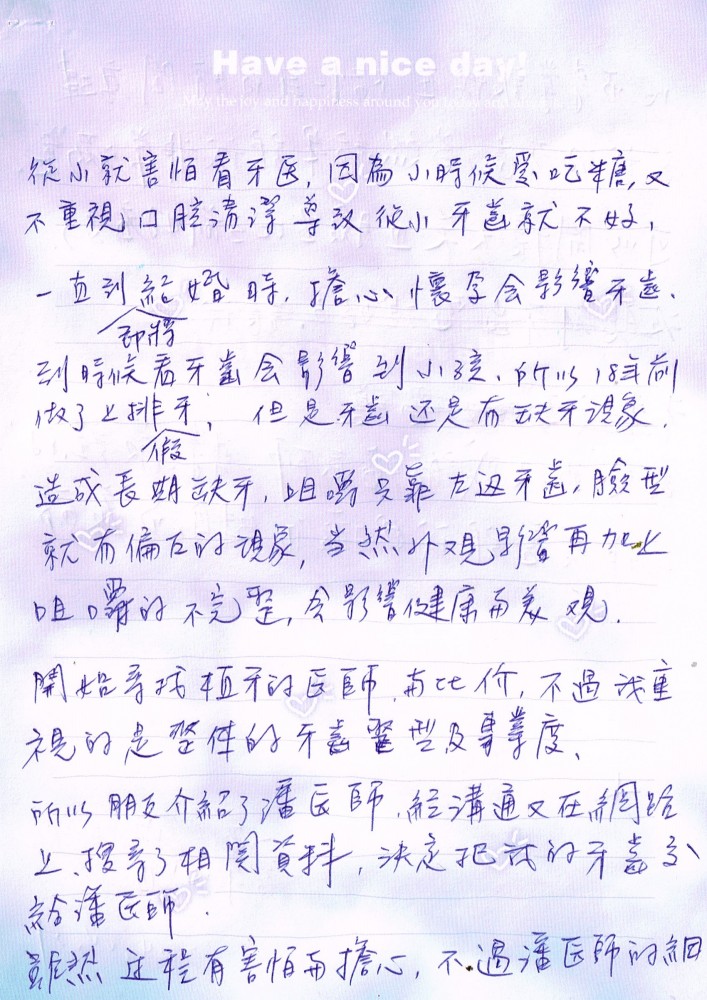 Have a nice day!
May the joy and happiness around you today and always
從小就害怕看牙医,因為小時候愛吃糖,又
不重視口腔清潔導致從小牙齒就不好,
一直到結婚時,擔心懷孕会影響牙齒、
即將
到時候看牙齒会影響到小孩、所以18年前
做了上排牙,但是牙齒还是有缺牙現象.
假
造成長期缺牙,咀嚼只靠左边牙齒,臉型
就有偏左的現象,当然外观影響再加上
咀嚼的不完整,会影響健康與美观.
開始尋找植牙的医師與比价,不過我重
視的是整体的牙齒整型及專業度、
所以朋友介紹了潘医師.經溝通又在網路
上、搜尋了相関資料,決定把我的牙齒交
給潘医師.
雖然过程有害怕與擔心,不過潘医師的細